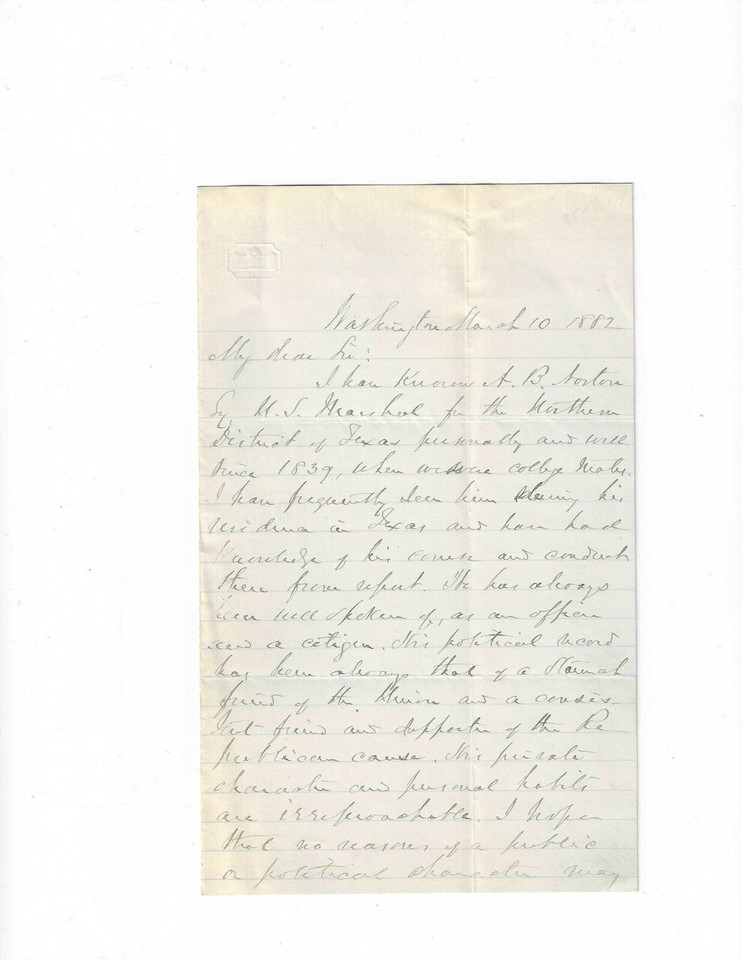 Washington March 10 1882
My dear Sir:
I have known A. B. Norton
Esq U. S. Marshal for the Northern
District of Texas personally and well
since 1839, when we were college mates.
I have frequently seen him during his
residence in Texas and have had
knowledge of his course and conduct
there from report. He has always
been well spoken of, as an officer
and a citizen. His political record
has been always that of a staunch
friend of the Union and a consis-
tent friend and supporter of the Re
publican cause. His private
character and personal habits
are irreproachable. I hope
that no reasons of a public
or political character may